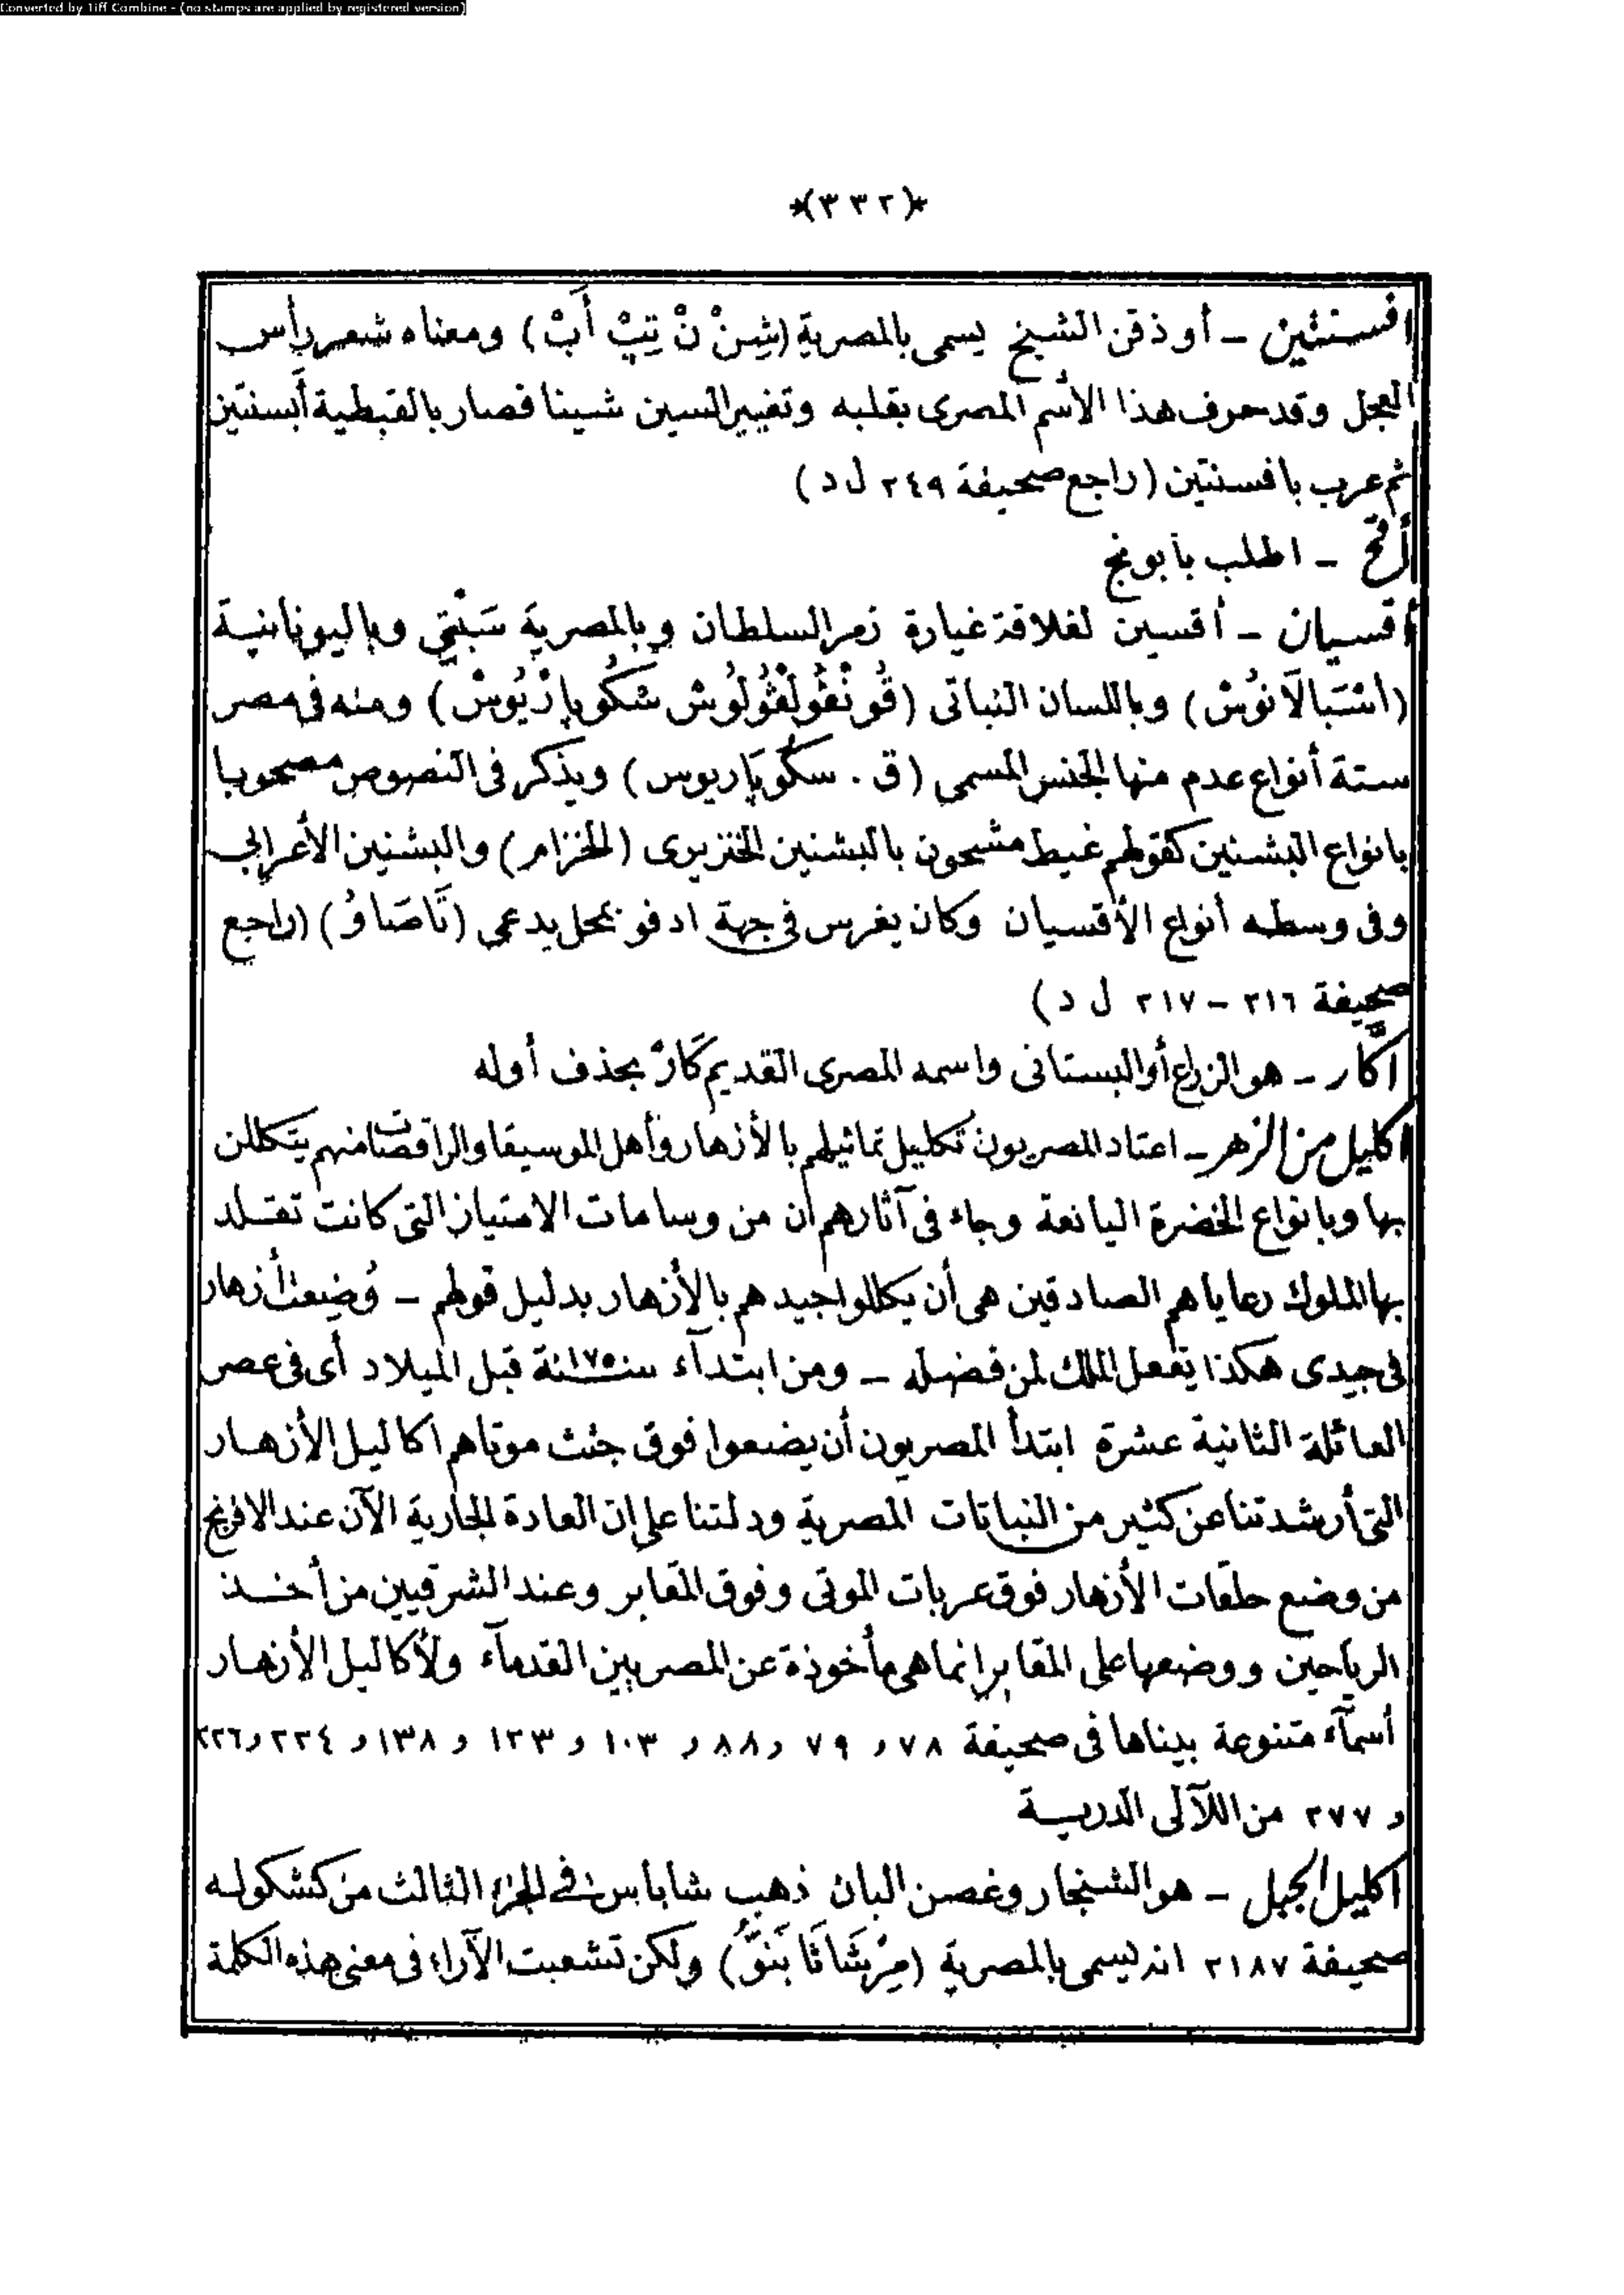 Converted by Tiff Combine - (no stamps are applied by registered version)
*(٣٣٢)*
افسنتين - أو ذقن الشيخ يسمى بالمصرية (شِنْ نْ تِبْ أَبْ) ومعناه شعر رأس
العجل وقد حرف هذا الاسم المصرى بقلبه وتغيير السين شينا فصار بالقبطية أَبسنتين
ثم عرب بافسنتين (راجع صحيفة ٢٤٩ ل د)
أقح - اطلب بابونج
أقسيان - أقسين لغلافة غيارة زمر السلطان وبالمصرية سَبْتِي وباليونانية
(اسْتَبالَانُوسْ) وباللسان النباتى (قُونْفُولْفُولُوسْ سْكُوپارْيُوسْ) ومنه فى مصر
ستة أنواع عدم منها الجنس المسمى (ق . سكُوپَاريوس) ويذكر فى النصوص مصحوبا
بانواع البشنين كقولهم غيط مشحون بالبشنين الخنزيرى (الخزام) والبشنين الأعرابى
وفى وسطه أنواع الأقسيان وكان يغرس فى جهة ادفو بمحل يدعى (تَاصَاوُ) (راجع
صحيفة ٢١٦ - ٢١٧ ل د)
أكَّار - هو الزراع أو البستانى واسمه المصرى القديم كَارْ بحذف أوله
اكليل من الزهر - اعتاد المصريون تكليل تماثيلهم بالأزهار وأهل الموسيقا والراقصات منهم يتكللن
بها وبانواع الخضرة اليانعة وجاء فى آثارهم أن من وسامات الامتياز التى كانت تقلد
بها الملوك رعاياهم الصادقين هى أن يكللوا جيدهم بالأزهار بدليل قولهم - وُضِعت أزهار
فى جيدى هكذا يفعل الملك لمن فضله - ومن ابتدآء سنة ١٧٥٠ قبل الميلاد أى فى عصر
العائلة الثانية عشرة ابتدأ المصريون أن يضعوا فوق جثث موتاهم اكاليل الأزهار
التى أرشدتنا عن كثير من النباتات المصرية ودلتنا على ان العادة الجارية الآن عند الافرنج
من وضع حلقات الأزهار فوق عربات الموتى وفوق المقابر وعند الشرقيين من أخذ
الرياحين ووضعها على المقابر انما هى مأخوذة عن المصريين القدمآء ولأكاليل الأزهار
أسمآء متنوعة بيناها فى صحيفة ٧٨ و ٧٩ و ٨٨ و ١٠٣ و ١٢٣ و ١٣٨ و ٢٢٤ و ٢٢٦
و ٢٧٧ من اللآلى الدرية
اكليل الجبل - هو الشنجار وغصن البان ذهب شاباس فى الجزء الثالث من كشكوله
صحيفة ٢١٨٧ انه يسمى بالمصرية (مِرْشَاتَا بَنَوُّ) ولكن تشعبت الآراء فى معنى هذه الكلمة